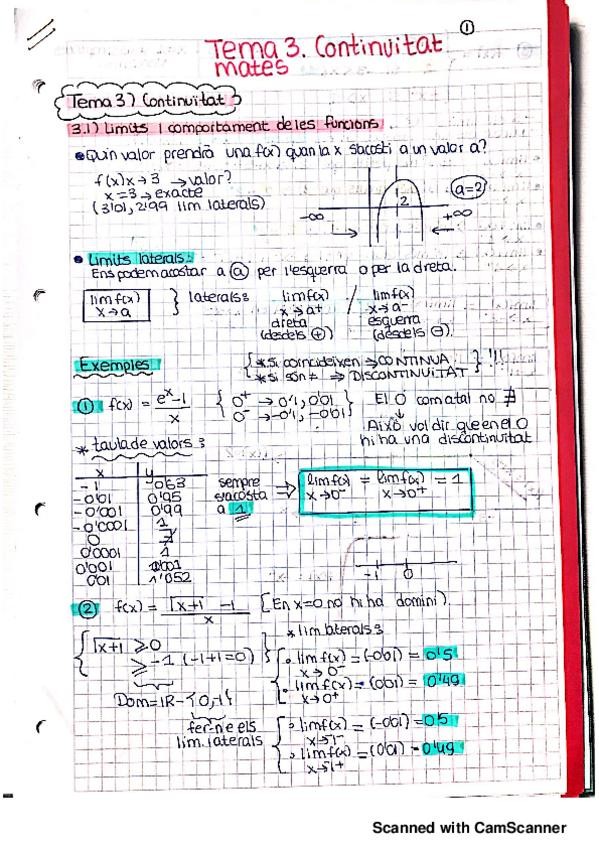 ①
Tema 3. Continuïtat
mates
Tema 3) Continuïtat
3.1) Límits i comportament de les funcions
• Quin valor prendrà una f(x) quan la x s'acosti a un valor a?
f(x) x→3 → valor?
x=3 → exacte
(3'01, 2'99 lim laterals)
-∞ 2 +∞ a=2
• Límits laterals:
Ens podem acostar a ⓐ per l'esquerra o per la dreta.
lim f(x) } laterals: lim f(x) / lim f(x)
x→a x→a+ x→a-
dreta esquerra
(desde ls ⊕) (desde ls ⊖)
Exemples { * si coincideixen ⇒ CONTINUA } !!!
* si són ≠ ⇒ DISCONTINUÏTAT
① f(x) = e^x-1 / x { 0+ → 0'1, 0'01 } El 0 com a tal no ∄
0- → -0'1, -0'01
Això vol dir que en el 0
hi ha una discontinuïtat
* taula de valors:
x y
-1 0'63
-0'01 0'95
-0'001 0'99
-0'0001 1
0 ∄
0'0001 1
0'001 1'001
0'01 1'052
sempre
s'acosta
a 1
⇒ lim f(x) = lim f(x) = 1
x→0- x→0+
-1 0
② f(x) = √x+1 -1 / x [En x=0 no hi ha domini).
{ √x+1 ≥0
≥-1 (-1+1=0) }
Dom=IR-{0,-1}
fer-ne els
lim. laterals
* lim laterals:
• lim f(x) = (-0'01) = 0'5
x→0-
• lim f(x) = (0'01) = 0'49
x→0+
• lim f(x) = (-0'01) = 0'5
x→-1-
• lim f(x) = (0'01) = 0'49
x→-1+
Scanned with CamScanner